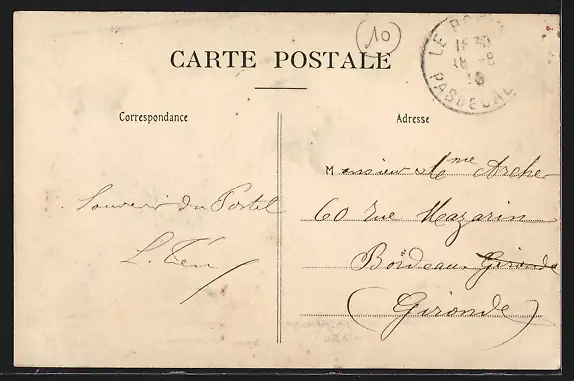 10
CARTE POSTALE
LE PORTEL
18 30
18 -8
10
PAS DE CAL
Correspondance
Adresse
Souvenir du Portel
L. Tén
Monsieur & Mme Archer
60 Rue Mazarin
Bordeaux Gironde
(Gironde)